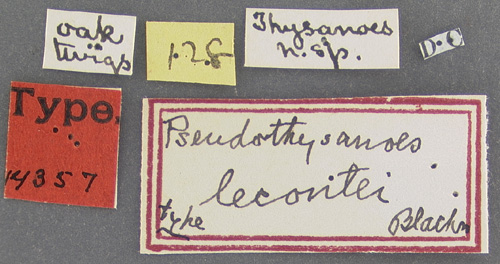 oak
twigs
1.28
Thysanoes
n.sp.
D.C
Type.
14357
Pseudothysanoes
lecontei
type Blackm